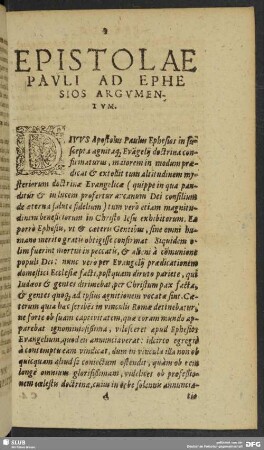 EPISTOLAE
PAVLI AD EPHE
SIOS ARGVMEN-
TVM.
DIVVS Apostolus Paulus Ephesios in
doctrina con-
firmaturus, maiorem in modum præ-
dicat & extollit tum altitudinem my-
steriorum doctrinæ Euangelicæ (quippe in qua pan-
ditur & in lucem profertur arcanum Dei consilium
de æterna salute fidelium) tum verò etiam magnitu-
dinem beneficiorum in Christo Iesu exhibitorum. Ea
porrò Ephesijs, vt & cæteris Gentibus, sine omni hu-
mano merito gratis obtigisse confirmat. Siquidem o-
lim fuerint mortui in peccatis, & alieni à cōmunione
populi Dei: nunc verò per Euangelij prædicationem
domestici Ecclesiæ facti, postquam diruto pariete, qui
Iudæos & gentes dirimebat, per Christum pax facta,
& gentes quoq; ad ipsius agnitionem vocatæ sint. Cæ-
terum quia hæc scribens in vinculis Romæ detinebatur,
ne fortè ob suam captiuitatem, quæ coram mundo ap-
parebat ignominiosissima, vilesceret apud Ephesios
Euangelium, quod eis annunciauerat: idcirco egregiè
à contemptu eam vindicat, dum in vincula illa non ob
quicquam aliud se coniectum ostendit, quàm ob rem
longè omnium gloriosissimam, videlicet ob professio-
nem cœlestis doctrinæ, cuius in orbe solenniter annuncia-
A
SLUB
DFG